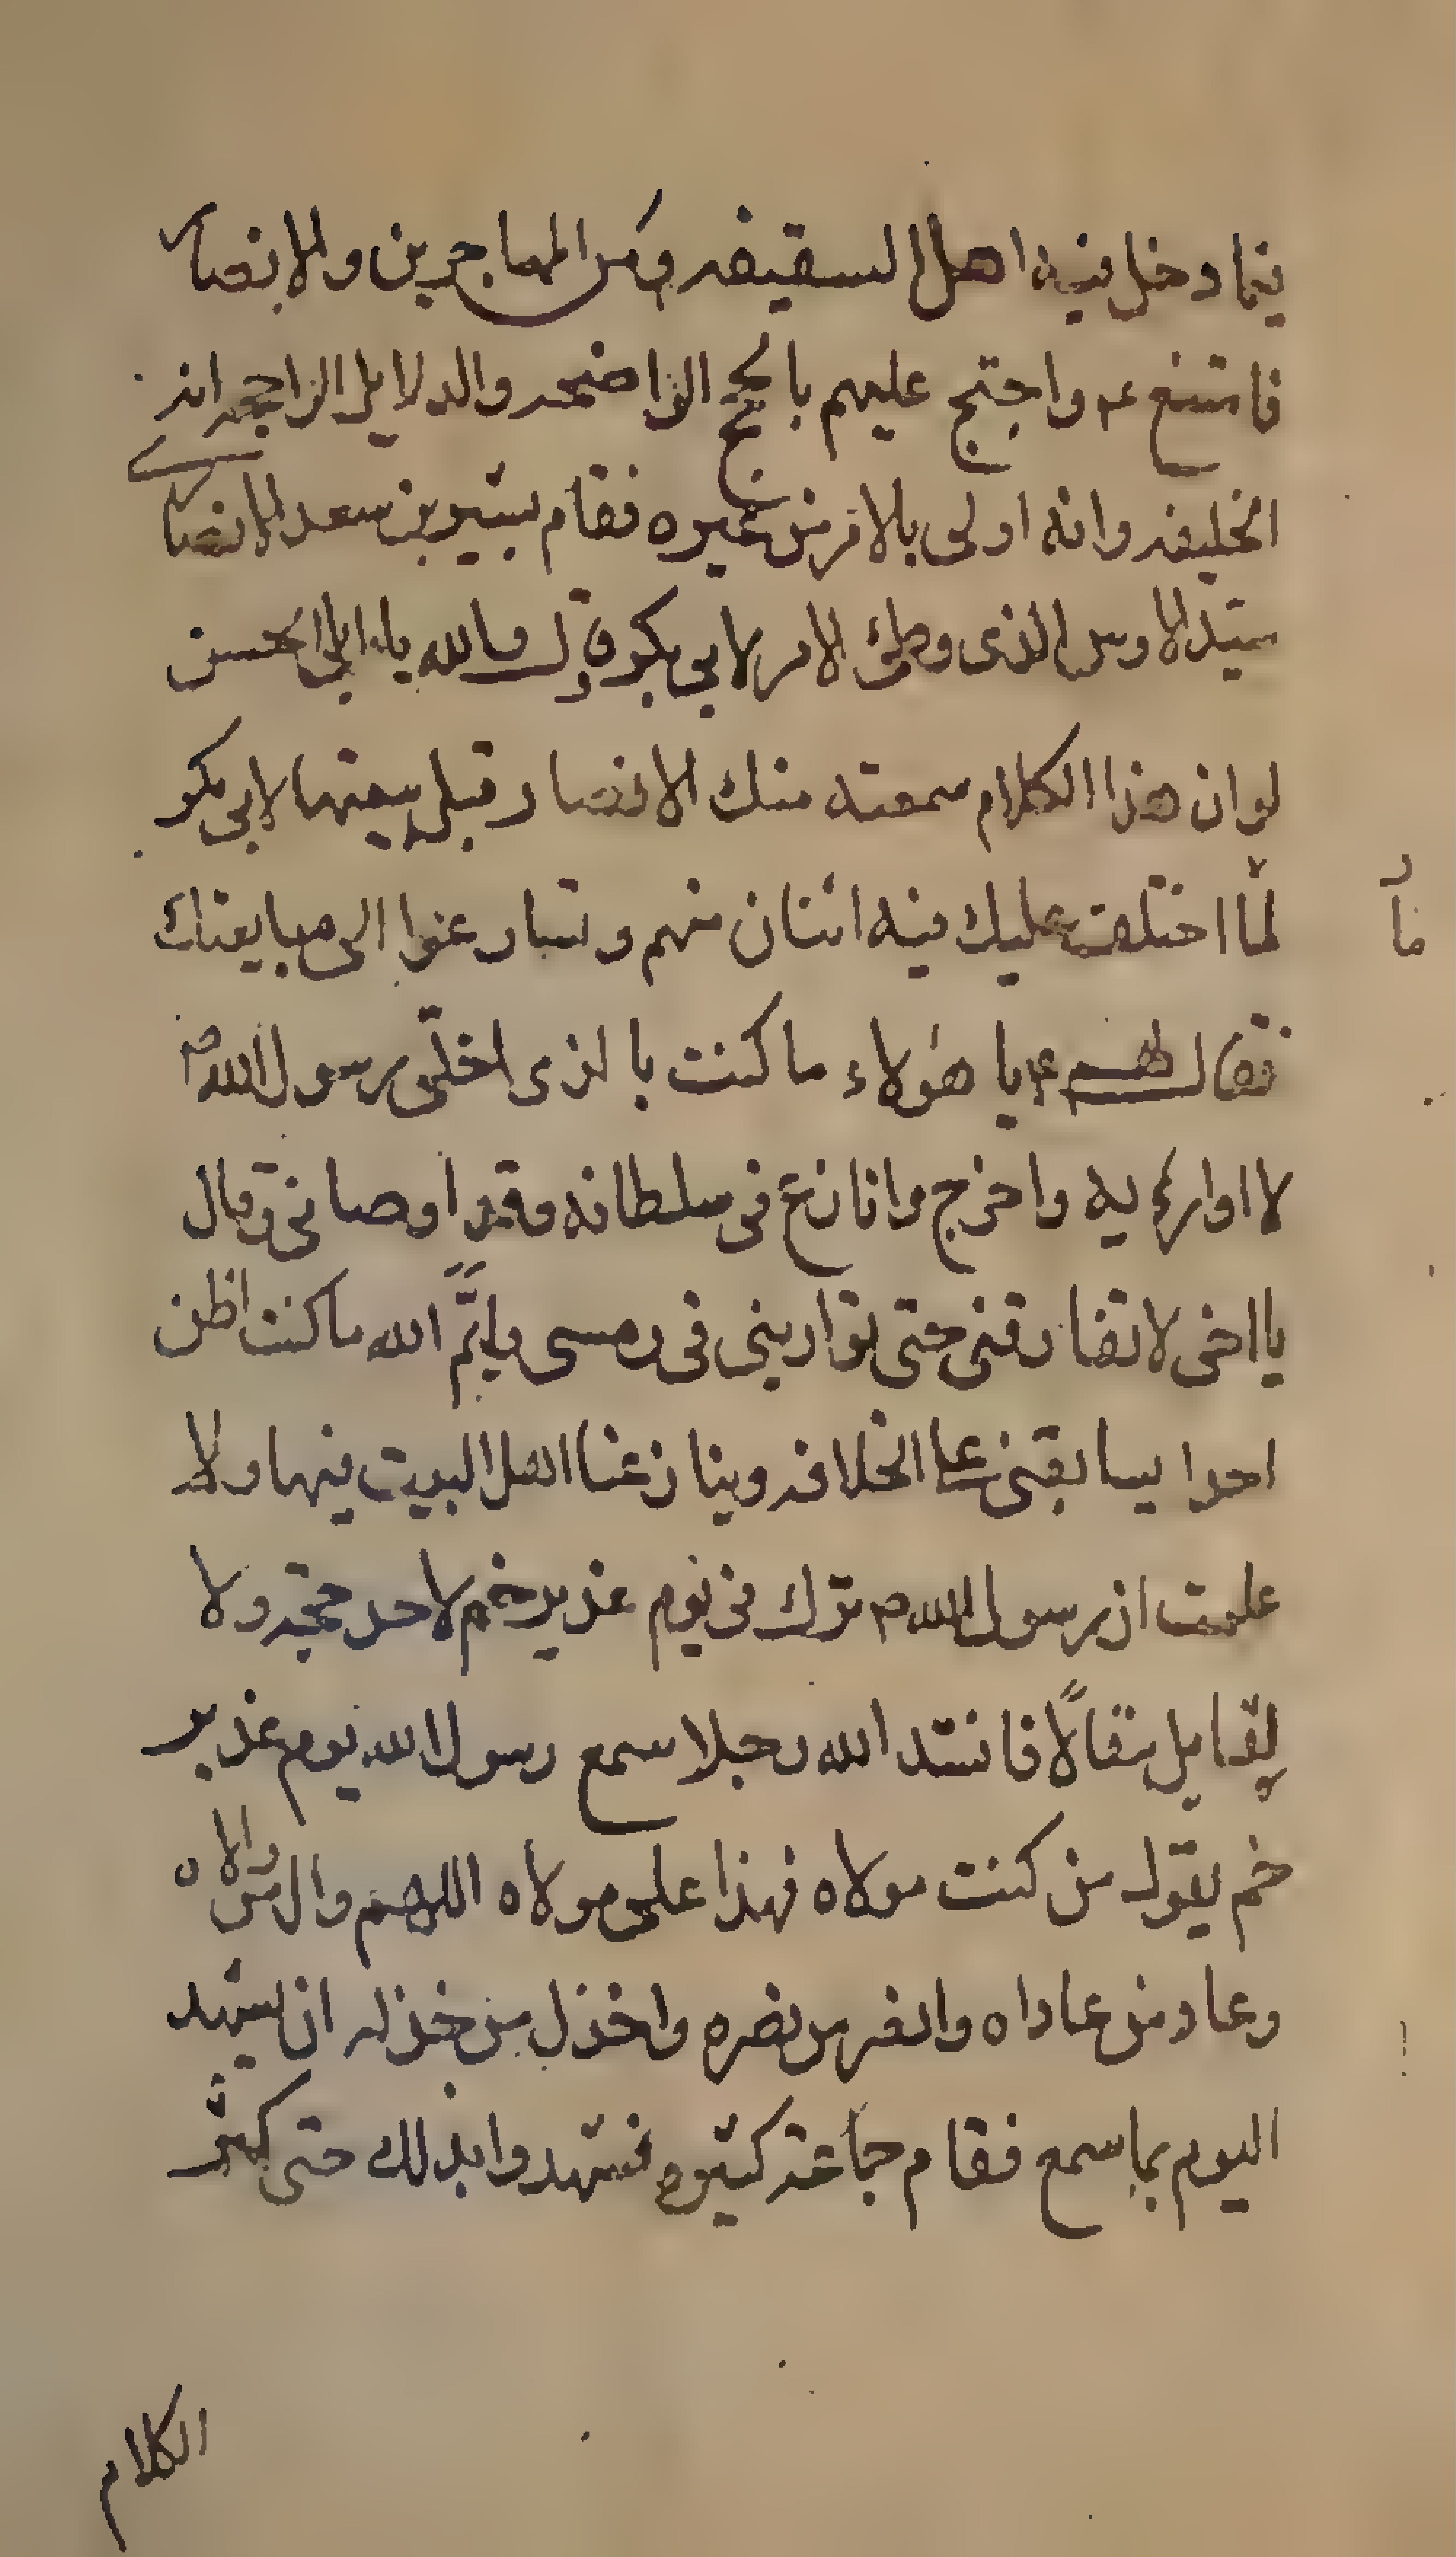 فيما دخل فيه اهل السقيفه ومن المهاجرين والانصار
فامتنع ع م واحتج عليهم بالحجج الواضحه والدلايل الراجحه انه
الخليفه وانه اولى بالامر من غيره فقام بشير بن سعد الانصاري
سيّد الاوس الذي وطئ الامر لابي بكر وقال والله يا ابا الحسن
لو ان هذا الكلام سمعته منك الانصار قبل بيعتها لابي بكر
لمّا اختلف عليك فيه اثنان منهم وتسارعوا الى مبايعتك
فقال لهم ع م يا هؤلاء ما كنت بالذي اخلّي رسول الله ص
لا اواريه واخرج وانازع في سلطانه وقد اوصاني وقال
يا اخي لا تفارقني حتى تواريني في رمسي وايمّ الله ما كنت اظن
احدا يسابقني على الخلافه وينازعنا اهل البيت فيها ولا
علمت ان رسول الله ص ترك في يوم غدير خم لاحد حجّه ولا
لقايل مقالًا فانشد الله رجلا سمع رسول الله يوم غدير
خم يقول من كنت مولاه فهذا علي مولاه اللهم وال من والاه
وعاد من عاداه وانصر من نصره واخذل من خذله ان يشهد
اليوم بما سمع فقام جماعة كثيره فشهدوا بذلك حتى كثر
الكلام